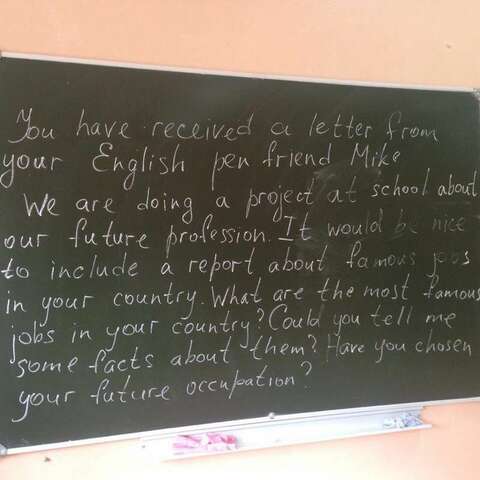 You have received a letter from
your English pen friend Mike
We are doing a project at school about
our future profession. It would be nice
to include a report about famous jobs
in your country. What are the most famous
jobs in your country? Could you tell me
some facts about them? Have you chosen
your future occupation?